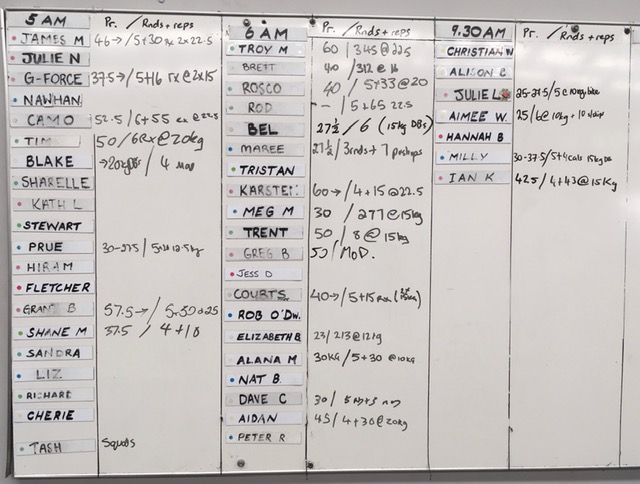 5 AM Pr. / Rnds + reps
JAMES M 46→ / 5+30 Rx 2x22.5
JULIE N
G-FORCE 37.5→ / 5+16 rx @ 2x15
NAWHAN
CAMO 52.5 / 6+55 rx @ 22.5
TIM 50 / 6 Rx @ 20kg
BLAKE / 4
SHARELLE
KATH L
STEWART
PRUE 30-27.5 /
HIRAM
FLETCHER
GRANT B 57.5→ / 5+30 @ 25
SHANE M 37.5 / 4+10
SANDRA
LIZ
RICHARD
CHERIE
TASH Squats
6 AM Pr. / Rnds + reps
TROY M 60 / 345 @ 22.5
BRETT 40 / 312 @ 16
ROSCO 40 / 5+33 @ 20
ROD — / 5+65 22.5
BEL 27½ / 6 (15kg DBs)
MAREE 27½ / 3rnds + 7 pushups
TRISTAN
KARSTEN 60→ / 4+15 @ 22.5
MEG M 30 / 277 @ 15kg
TRENT 50 / 8 @ 15kg
GREG B 50 / MOD.
JESS D
COURTS 40→ / 5+15 Rx
ROB O'DW.
ELIZABETH B 23 / 213 @ 12kg
ALANA M 30KG / 5+30 @ 10kg
NAT B.
DAVE C 30 /
AIDAN 45 / 4+30 @ 20kg
PETER R
9.30 AM Pr. / Rnds + reps
CHRISTIAN W
ALISON C
JULIE L 25-27.5 / 5 @ 10kg
AIMEE W. 25 / 6 @ 10kg +
HANNAH B
MILLY 30-37.5 / 5+4cals 15kg DB
IAN K 42.5 / 4+43 @ 15Kg